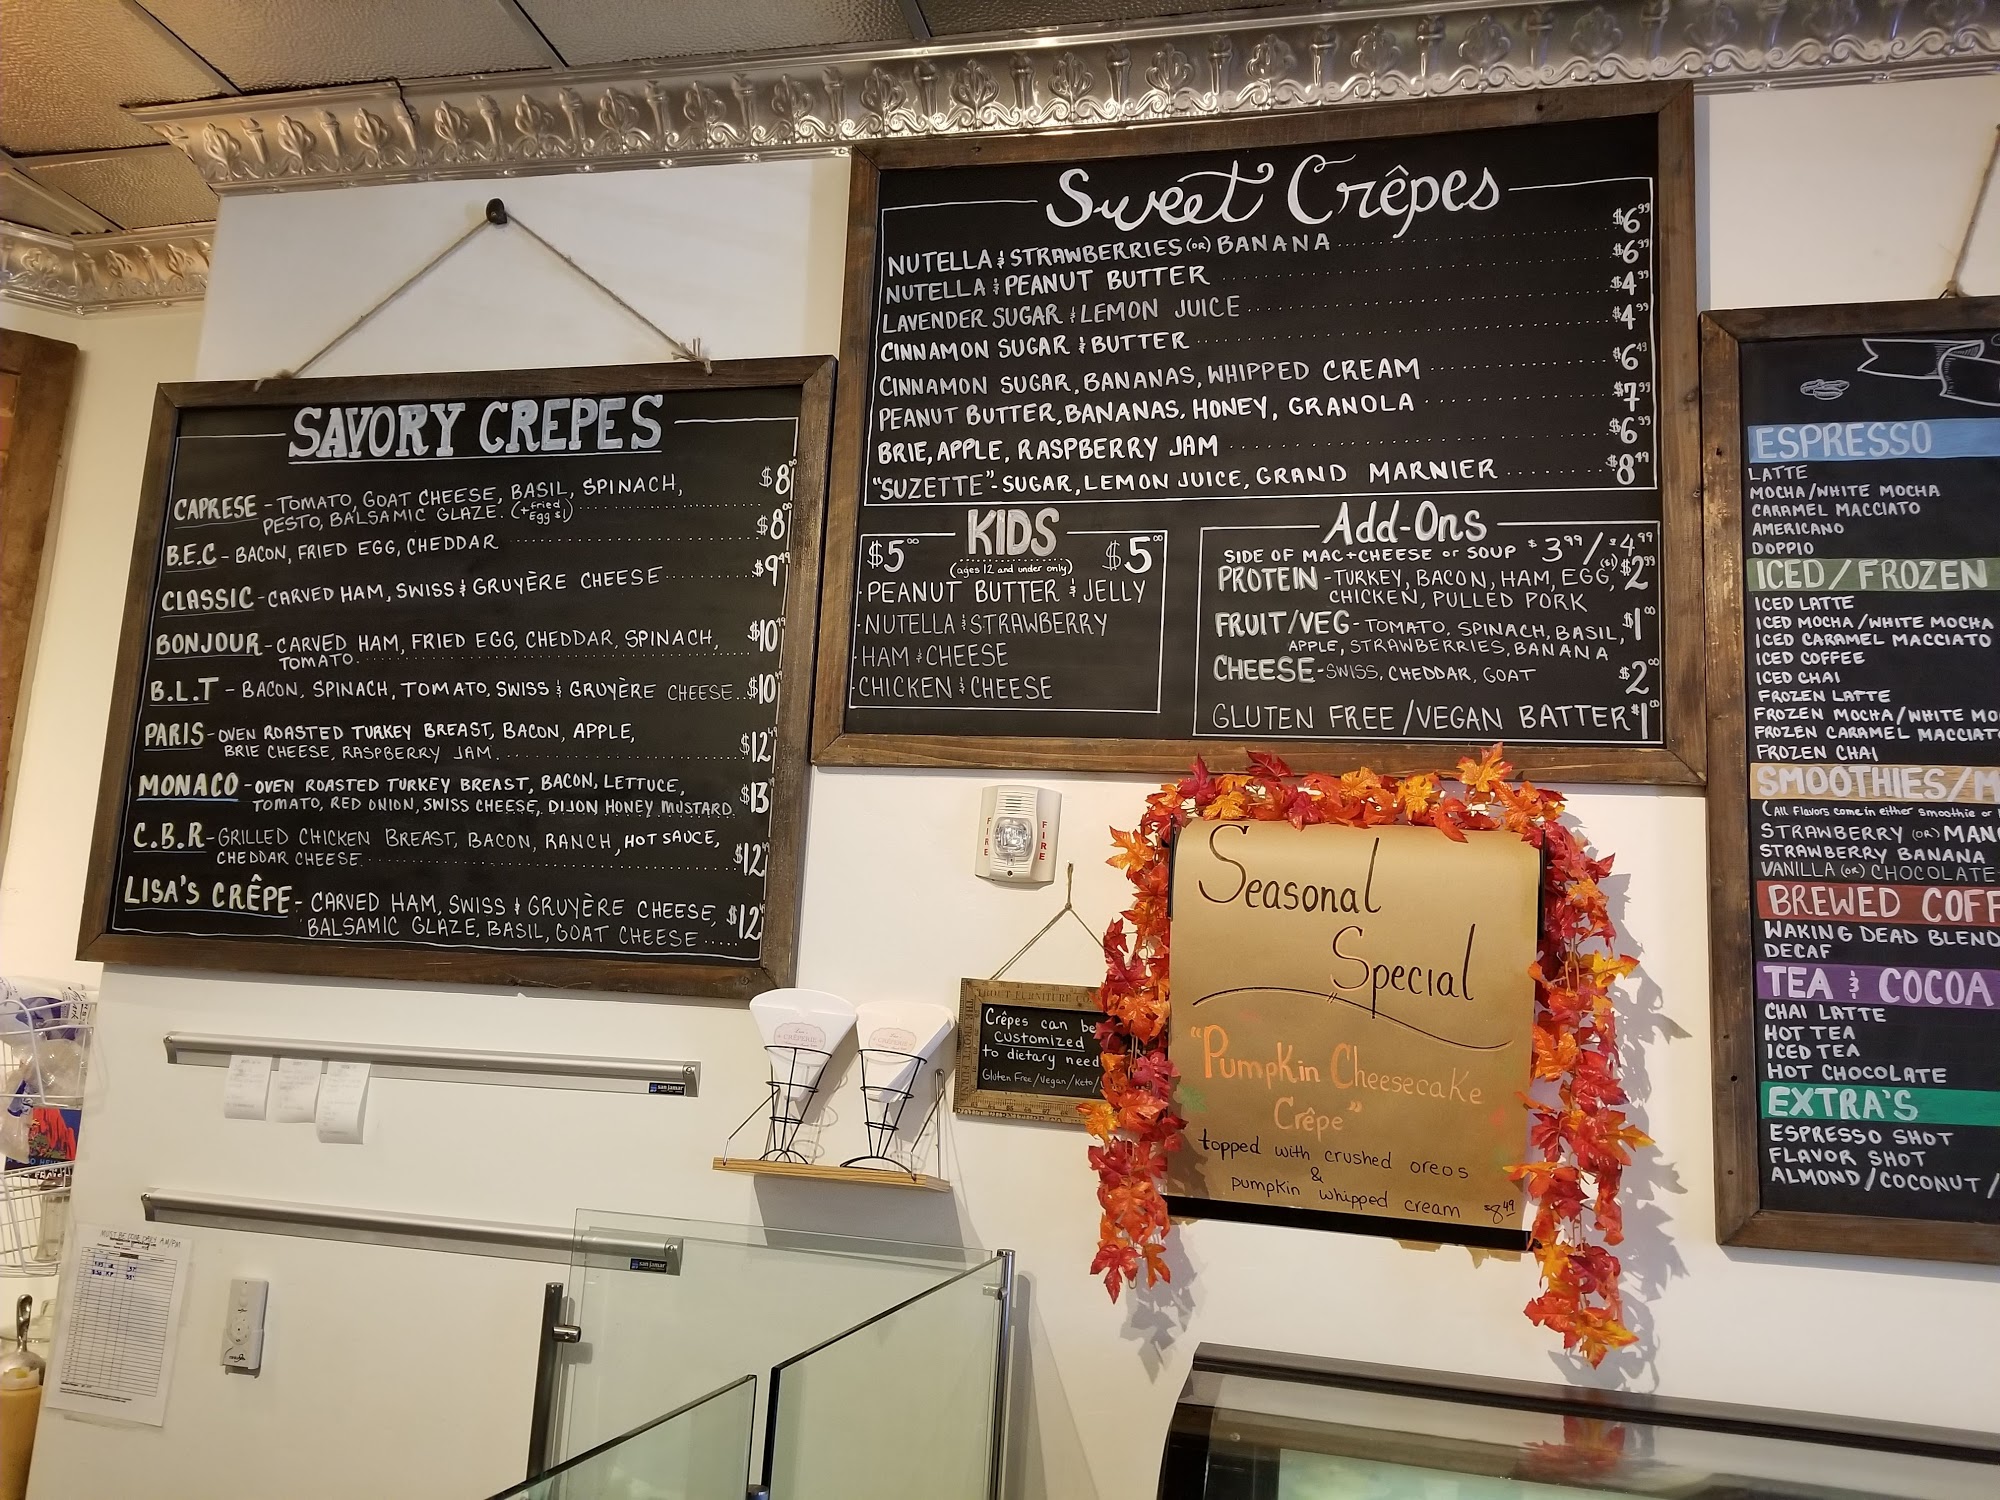 SAVORY CREPES
CAPRESE - TOMATO, GOAT CHEESE, BASIL, SPINACH, $8
PESTO, BALSAMIC GLAZE. (+ fried Egg $1)
B.E.C - BACON, FRIED EGG, CHEDDAR $8
CLASSIC - CARVED HAM, SWISS & GRUYÈRE CHEESE $9 49
BONJOUR - CARVED HAM, FRIED EGG, CHEDDAR, SPINACH, $10
TOMATO.
B.L.T - BACON, SPINACH, TOMATO, SWISS & GRUYÈRE CHEESE.. $10
PARIS - OVEN ROASTED TURKEY BREAST, BACON, APPLE,
BRIE CHEESE, RASPBERRY JAM $12
MONACO - OVEN ROASTED TURKEY BREAST, BACON, LETTUCE,
TOMATO, RED ONION, SWISS CHEESE, DIJON HONEY MUSTARD $13
C.B.R - GRILLED CHICKEN BREAST, BACON, RANCH, HOT SAUCE,
CHEDDAR CHEESE $12
LISA'S CRÊPE - CARVED HAM, SWISS & GRUYÈRE CHEESE,
BALSAMIC GLAZE, BASIL, GOAT CHEESE..... $12
Sweet Crêpes
NUTELLA & STRAWBERRIES (OR) BANANA $6 99
NUTELLA & PEANUT BUTTER $6 99
LAVENDER SUGAR & LEMON JUICE $4 99
CINNAMON SUGAR & BUTTER $4 99
CINNAMON SUGAR, BANANAS, WHIPPED CREAM $6 49
PEANUT BUTTER, BANANAS, HONEY, GRANOLA $7 99
BRIE, APPLE, RASPBERRY JAM $6 99
"SUZETTE" - SUGAR, LEMON JUICE, GRAND MARNIER $8 49
KIDS
$5 00 $5 00
(ages 12 and under only)
· PEANUT BUTTER & JELLY
· NUTELLA & STRAWBERRY
· HAM & CHEESE
· CHICKEN & CHEESE
Add-Ons
SIDE OF MAC + CHEESE or SOUP $3 99 / $4 99
PROTEIN - TURKEY, BACON, HAM, EGG, ($1) $2 99
CHICKEN, PULLED PORK
FRUIT/VEG - TOMATO, SPINACH, BASIL, $1 00
APPLE, STRAWBERRIES, BANANA
CHEESE - SWISS, CHEDDAR, GOAT $2 00
GLUTEN FREE/VEGAN BATTER $1
ESPRESSO
LATTE
MOCHA/WHITE MOCHA
CARAMEL MACCIATO
AMERICANO
DOPPIO
ICED/FROZEN
ICED LATTE
ICED MOCHA/WHITE MOCHA
ICED CARAMEL MACCIATO
ICED COFFEE
ICED CHAI
FROZEN LATTE
FROZEN MOCHA/WHITE MO
FROZEN CARAMEL MACCIATO
FROZEN CHAI
SMOOTHIES/M
(All Flavors come in either smoothie or
STRAWBERRY (OR) MAN
STRAWBERRY BANANA
VANILLA (OR) CHOCOLATE
BREWED COFF
WAKING DEAD BLEND
DECAF
TEA & COCOA
CHAI LATTE
HOT TEA
ICED TEA
HOT CHOCOLATE
EXTRA'S
ESPRESSO SHOT
FLAVOR SHOT
ALMOND/COCONUT/
FIRE FIRE
Crêpes can be
customized
to dietary need
Gluten Free/Vegan/Keto/
Seasonal
Special
"Pumpkin Cheesecake
Crêpe"
topped with crushed oreos
&
pumpkin whipped cream $8.49
CRÊPERIE
CRÊPERIE
san jamar
san jamar
MUST BE DONE DAILY AM/PM